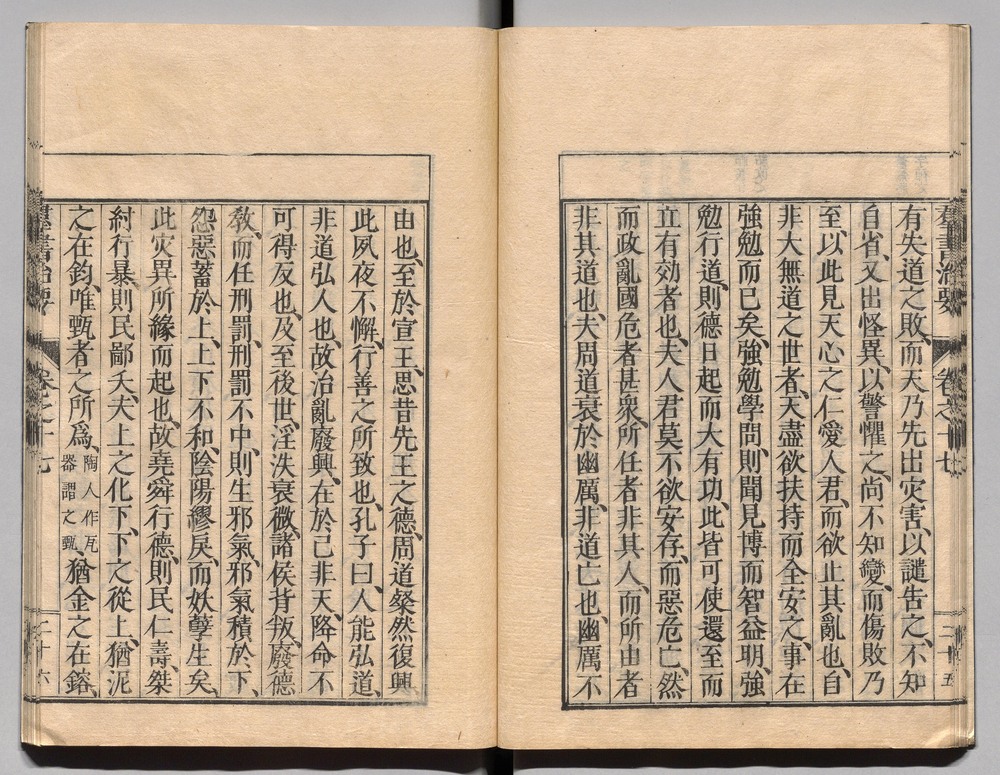 羣書治要 卷之十七 二十五
有失道之敗、而天乃先出灾害、以譴告之、不知
自省、又出怪異、以警懼之、尚不知變、而傷敗乃
至、以此見天心之仁愛人君、而欲止其亂也、自
非大無道之世者、天盡欲扶持而全安之、事在
強勉而已矣、強勉學問、則聞見博而智益明、強
勉行道、則德日起而大有功、此皆可使還至而
立有効者也、夫人君莫不欲安存、而惡危亡、然
而政亂國危者甚衆、所任者非其人、而所由者
非其道也、夫周道衰於幽厲、非道亡也、幽厲不
由也、至於宣王、思昔先王之德、周道粲然復興
此夙夜不懈、行善之所致也、孔子曰、人能弘道、
非道弘人也、故治亂廢興、在於己非天、降命不
可得反也、及至後世、淫泆衰微、諸侯背叛、廢德
敎、而任刑罰、刑罰不中、則生邪氣、邪氣積於下、
怨惡蓄於上、上下不和、陰陽繆戾、而妖孽生矣、
此灾異所緣而起也、故堯舜行德、則民仁壽、桀
紂行暴、則民鄙夭、夫上之化下、下之從上、猶泥
之在鈞、唯甄者之所爲、陶人作瓦器謂之甄、猶金之在鎔、
羣書治要 卷之十七 二十六